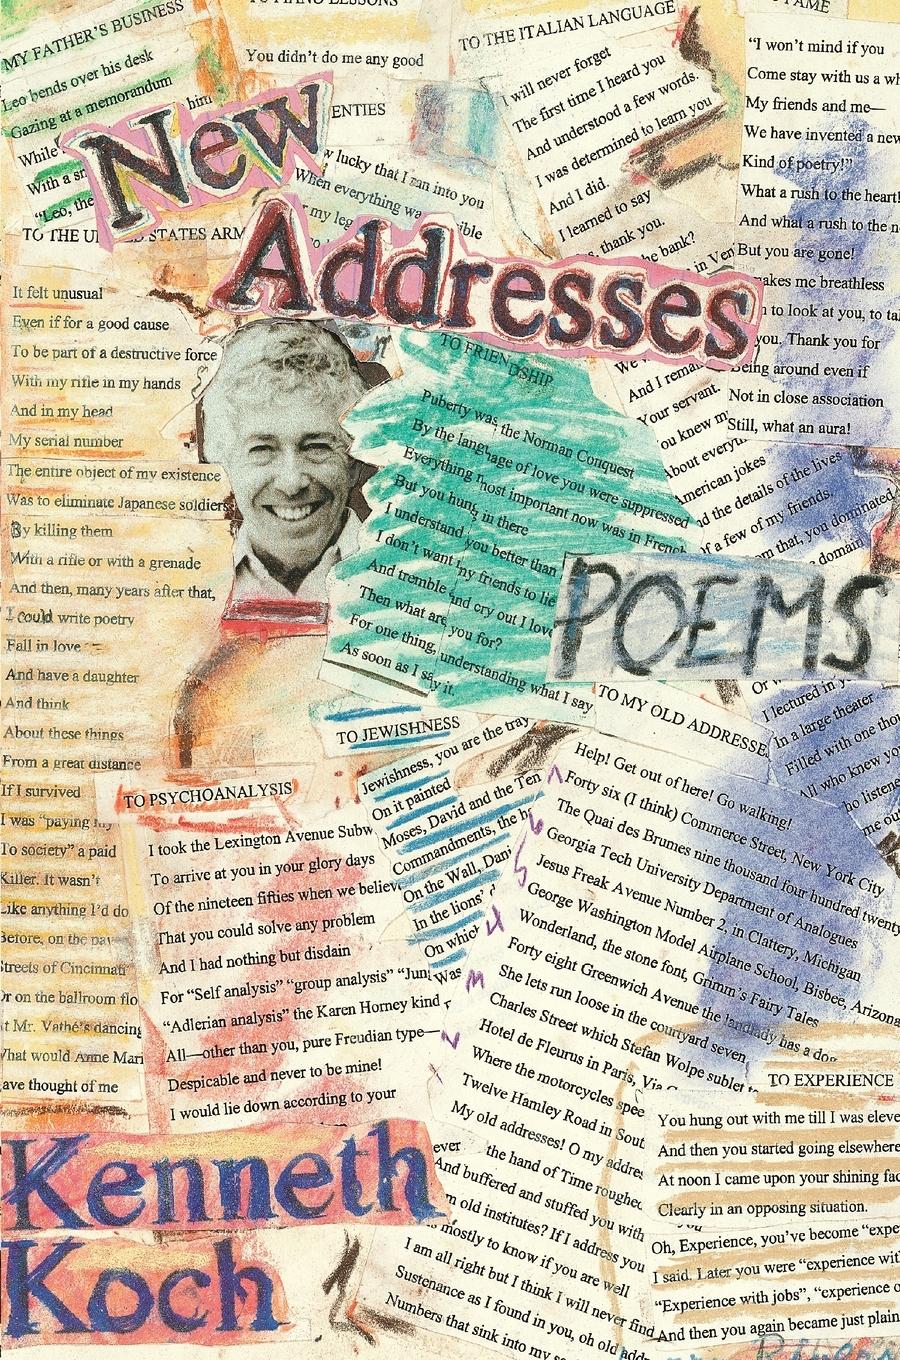 New
Addresses
POEMS
Kenneth
Koch
MY FATHER'S BUSINESS
Leo bends over his desk
Gazing at a memorandum
While
him
With a sn
"Leo, the
TO PIANO LESSONS
You didn't do me any good
ENTIES
w lucky that I ran into you
When everything wa
ible
my leg
TO THE ITALIAN LANGUAGE
I will never forget
The first time I heard you
And understood a few words.
I was determined to learn you
And I did.
I learned to say
thank you.
he bank?
in Ven
We
And I remai
Your servant.
ou knew m
About everyth
American jokes
nd the details of the lives
If a few of my friends.
om that, you dominated
domain
FAME
"I won't mind if you
Come stay with us a wh
My friends and me—
We have invented a new
Kind of poetry!"
What a rush to the heart!
And what a rush to the n
But you are gone!
akes me breathless
to look at you, to ta
you. Thank you for
Being around even if
Not in close association
Still, what an aura!
TO THE UN
STATES ARM
It felt unusual
Even if for a good cause
To be part of a destructive force
With my rifle in my hands
And in my head
My serial number
The entire object of my existence
Was to eliminate Japanese soldiers
By killing them
With a rifle or with a grenade
And then, many years after that,
I could write poetry
Fall in love
And have a daughter
And think
About these things
From a great distance
If I survived
I was "paying my
To society" a paid
Killer. It wasn't
Like anything I'd do
Before, on the pav
Streets of Cincinnati
Or on the ballroom flo
t Mr. Vathé's dancing
What would Anne Mari
ave thought of me
TO FRIENDSHIP
Puberty was the Norman Conquest
By the language of love you were suppressed
Everything most important now was in French
But you hung in there
I understand you better than
I don't want my friends to lie
And tremble and cry out I love
Then what are you for?
For one thing, understanding what I say
As soon as I say it.
TO JEWISHNESS
Jewishness, you are the tray
On it painted
Moses, David and the Ten
Commandments, the h
On the Wall, Dani
In the lions' d
On which
Was
TO PSYCHOANALYSIS
I took the Lexington Avenue Subw
To arrive at you in your glory days
Of the nineteen fifties when we believ
That you could solve any problem
And I had nothing but disdain
For "Self analysis" "group analysis" "Jung
"Adlerian analysis" the Karen Horney kind
All—other than you, pure Freudian type—
Despicable and never to be mine!
I would lie down according to your
TO MY OLD ADDRESSE
Help! Get out of here! Go walking!
Forty six (I think) Commerce Street, New York City
The Quai des Brumes nine thousand four hundred twenty
Georgia Tech University Department of Analogues
Jesus Freak Avenue Number 2, in Clattery, Michigan
George Washington Model Airplane School, Bisbee, Arizona
Wonderland, the stone font, Grimm's Fairy Tales
Forty eight Greenwich Avenue the landlady has a dog
She lets run loose in the courtyard seven
Charles Street which Stefan Wolpe sublet t
Hotel de Fleurus in Paris, Via
Where the motorcycles spee
Twelve Hamley Road in Sout
My old addresses! O my addres
ever
the hand of Time roughed
And buffered and stuffed you with
m old institutes? If I address you
mostly to know if you are well
I am all right but I think I will never find
Sustenance as I found in you, oh old addr
Numbers that sink into my
Or w
I lectured in
In a large theater
Filled with one thou
All who knew you
ho listene
me ou
TO EXPERIENCE
You hung out with me till I was eleve
And then you started going elsewhere
At noon I came upon your shining fac
Clearly in an opposing situation.
Oh, Experience, you've become "expe
I said. Later you were "experience wit
"Experience with jobs", "experience o
And then you again became just plain